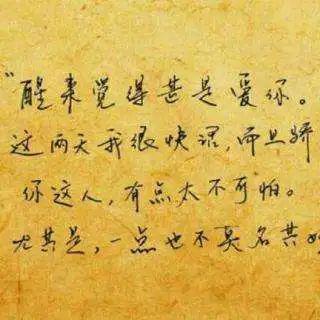 “醒来觉得甚是爱你。
这两天我很快活，而且骄
你这人，有点太不可怕。
尤其是，一点也不莫名其